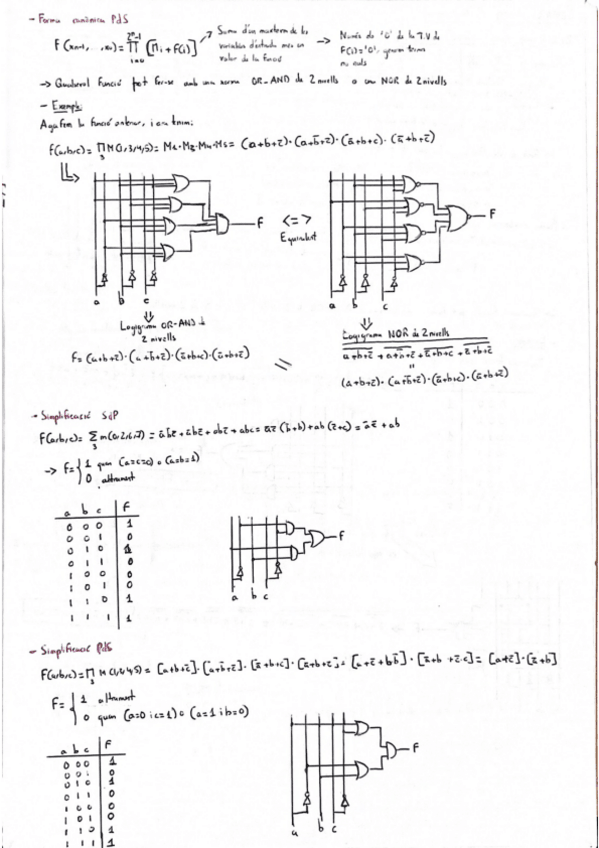 - Forma canònica PdS
F(xn-1, ..,x0) = ∏ [Mi + F(i)]
2ⁿ-1
i=0
Suma d'un maxterm de les
variables d'entrada més un
valor de la funció
Només els '0' de la T.V de
F(i)='0', generen termes
no nuls
→ Qualsevol funció pot fer-se amb una xarxa OR-AND de 2 nivells o una NOR de 2 nivells
- Exemple:
Agafem la funció anterior, i ara tenim:
f(a,b,c) = ∏₃ M(1,3,4,5) = M1·M3·M4·M5 = (a+b+c̄)·(a+b̄+c̄)·(ā+b+c)·(ā+b+c̄)
F
<=>
Equivalent
F
a b c
a b c
Logigrama OR-AND de
2 nivells
Logigrama NOR de 2 nivells
F = (a+b+c̄)·(a+b̄+c̄)·(ā+b+c)·(ā+b+c̄)
=
a+b+c̄ + a+b̄+c̄ + ā+b+c + ā+b+c̄
=
(a+b+c̄)·(a+b̄+c̄)·(ā+b+c)·(ā+b+c̄)
- Simplificació SdP
F(a,b,c) = ∑₃ m(0,2,6,7) = āb̄c̄ + ābc̄ + abc̄ + abc = āc̄(b̄+b) + ab(c̄+c) = āc̄ + ab
→ F = { 1 quan (a=c=0) o (a=b=1)
0 altrament
a b c F
0 0 0 1
0 0 1 0
0 1 0 1
0 1 1 0
1 0 0 0
1 0 1 0
1 1 0 1
1 1 1 1
F
a b c
- Simplificació PdS
F(a,b,c) = ∏₃ M(1,3,4,5) = [a+b+c̄]·[a+b̄+c̄]·[ā+b+c]·[ā+b+c̄] = [a+c̄+b b̄]·[ā+b+c̄·c] = [a+c̄]·[ā+b]
F = { 1 altrament
0 quan (a=0 i c=1) o (a=1 i b=0)
a b c F
0 0 0 1
0 0 1 0
0 1 0 1
0 1 1 0
1 0 0 0
1 0 1 0
1 1 0 1
1 1 1 1
F
a b c